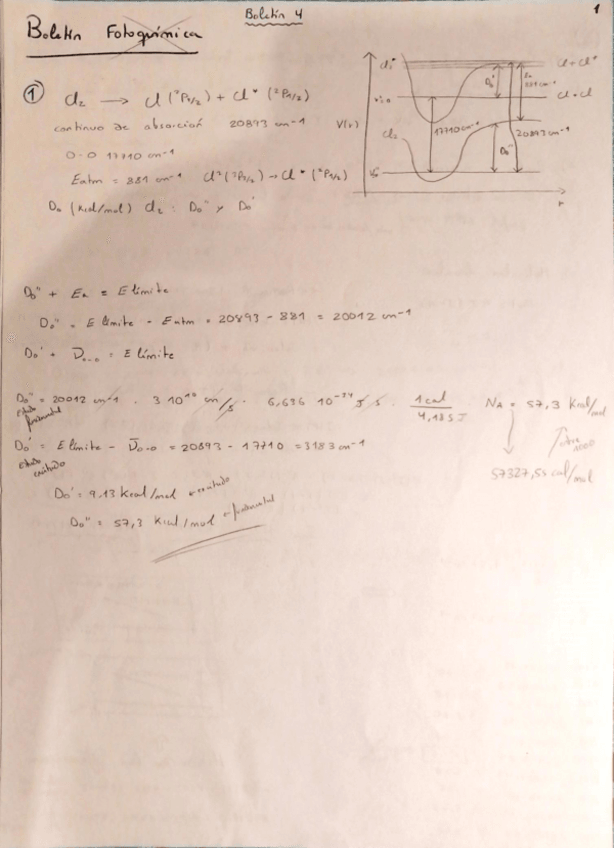 Boletín 4
1
Boletín Fotoquímica
① Cl₂ → Cl (²P₃/₂) + Cl* (²P₁/₂)
continuo de absorción 20893 cm⁻¹
0-0 17710 cm⁻¹
Eatm = 881 cm⁻¹ Cl (²P₃/₂) → Cl* (²P₁/₂)
D₀ (Kcal/mol) Cl₂ : D₀'' y D₀'
V(r)
Cl₂*
Cl + Cl*
D₀'
Ea
881 cm⁻¹
Cl + Cl
Cl₂
17710 cm⁻¹
20893 cm⁻¹
D₀''
r
D₀'' + Ea = E límite
D₀'' = E límite - Eatm = 20893 - 881 = 20012 cm⁻¹
D₀' + ν̄₀₋₀ = E límite
D₀'' = 20012 cm-1 · 3 10¹⁰ cm/s · 6,626 10⁻³⁴ J s · 1 cal / 4,185 J NA = 57,3 Kcal/mol
estado fundamental
57327,55 cal/mol
D₀' = E límite - ν̄₀₋₀ = 20893 - 17710 = 3183 cm⁻¹
estado excitado
D₀' = 9,13 Kcal/mol ← excitado
D₀'' = 57,3 Kcal/mol ← fundamental